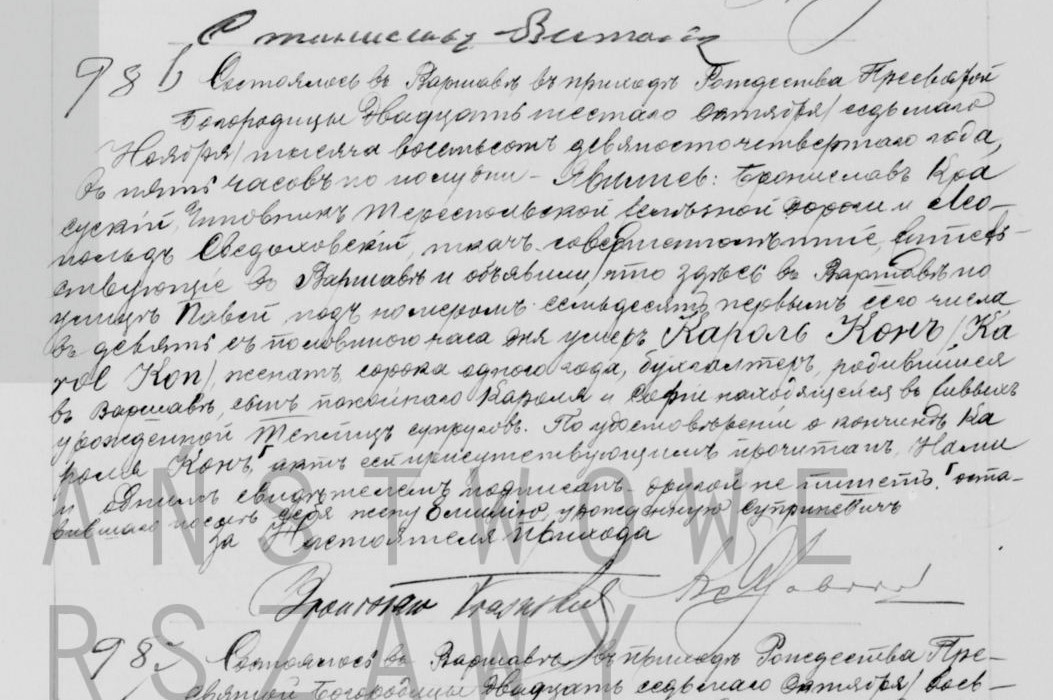 Станиславъ
986 Состоялось въ Варшавѣ въ приходѣ Рождества Пресвятой
Богородицы двадцать шестаго Октября/седьмаго
Ноября/тысяча восемьсотъ девяносто четвертаго года,
въ пять часовъ по полудни – Явились: Брониславъ Кра
суский, Чиновникъ Тереспольской желѣзной дороги и Лео-
польдъ ткачъ совершеннолѣтніе, житель-
ствующіе въ Варшавѣ и объявили, что здѣсь въ Варшавѣ по
улицѣ Павей подъ номеромъ семьдесятъ первымъ сего числа
въ девять съ половиною часа дня умеръ Кароль Конъ/Ка
rol Kon/, женатъ, сорока одного года, бухгалтеръ, родившійся
въ Варшавѣ, сынъ покойнаго Кароля и Софіи находящейся въ живыхъ
урожденной Теплицъ супруговъ. По удостовѣреніи о кончинѣ Ка
роля Конъ, актъ сей присутствующимъ прочитанъ, Нами
и однимъ свидѣтелемъ подписанъ, другой не пишетъ. оста-
вившаго послѣ себя жену Эмилію, урожденную
за Настоятеля Прихода
ANSTWOWE
RSZAWY
98 Состоялось въ Варшавѣ въ приходѣ Рождества Пре-
святой Богородицы двадцать седьмаго Октября/вось-